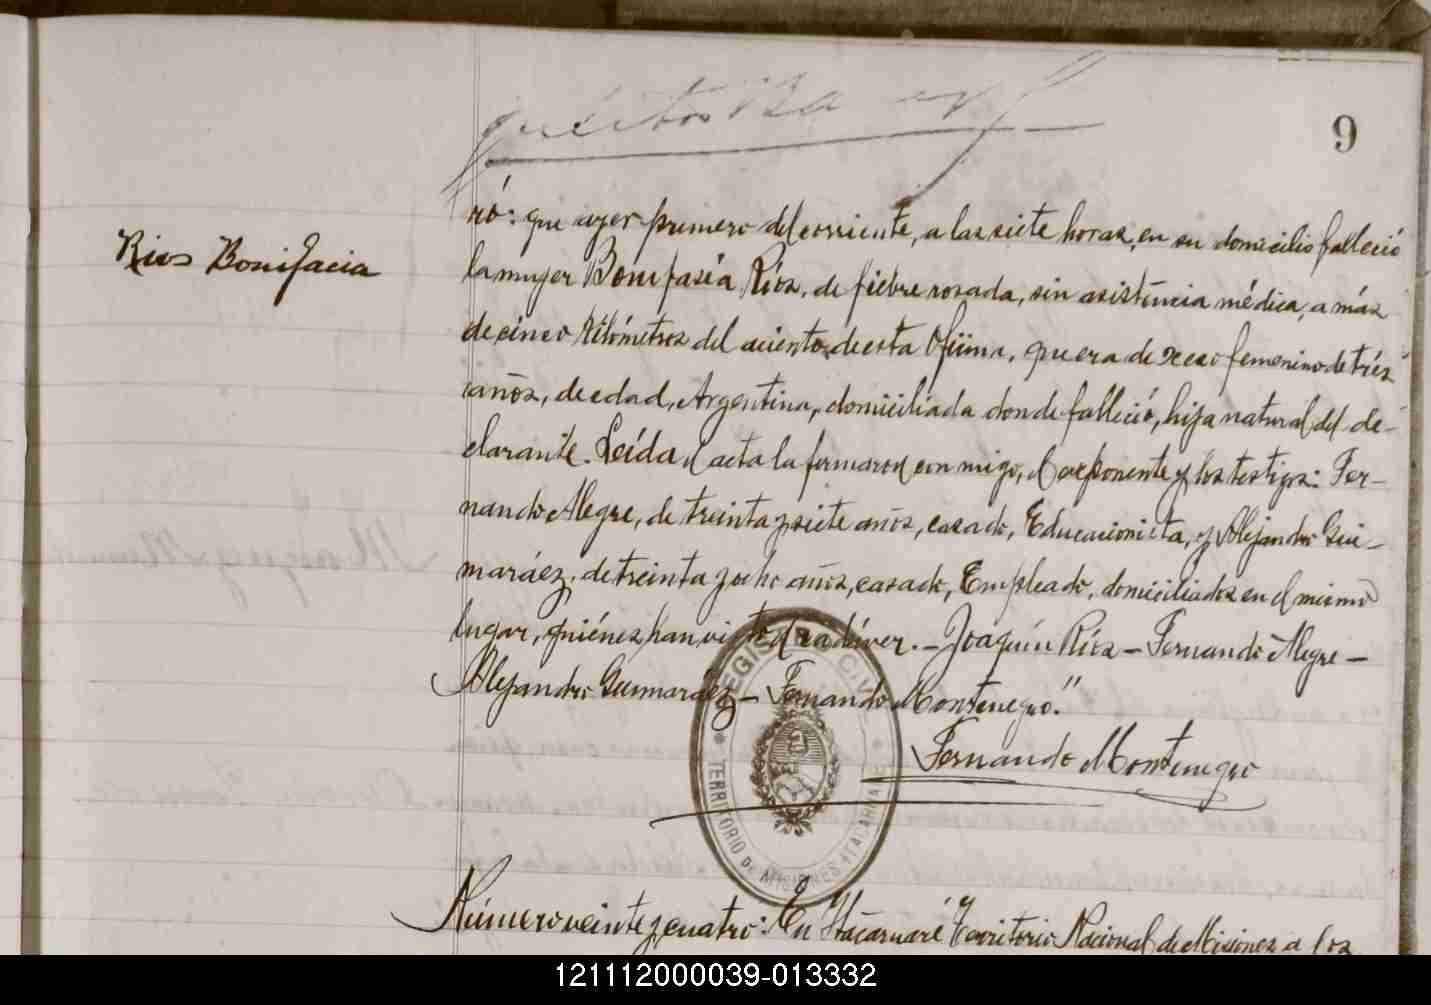 9
Rios Bonifacia
ró: que ayer primero del corriente, a las siete horas, en su domicilio falleció
la mujer Bonifasia Ríos, de fiebre rosada, sin asistencia médica, a más
de cinco kilómetros del asiento de esta Oficina, que era de sexo femenino de trés
años, de edad, Argentina, domiciliada donde falleció, hija natural del de-
clarante. Leída el acta la firmaron con migo, el exponente y los testigos: Fer-
nando Alegre, de treinta y siete años, casado, Educacionista, y Alejandro Gui-
maráez, de treinta y ocho años, casado, Empleado, domiciliados en el mismo
lugar, quiénes han visto el cadáver. - Joaquín Ríos - Fernando Alegre -
Alejandro Guimaráez - Fernando Montenegro."
Fernando Montenegro
REGISTRO CIVIL
TERRITORIO DE MISIONES ITACARUARE
Número veinte y cuatro: En Itacaruaré Territorio Nacional de Misiones a los
121112000039-013332